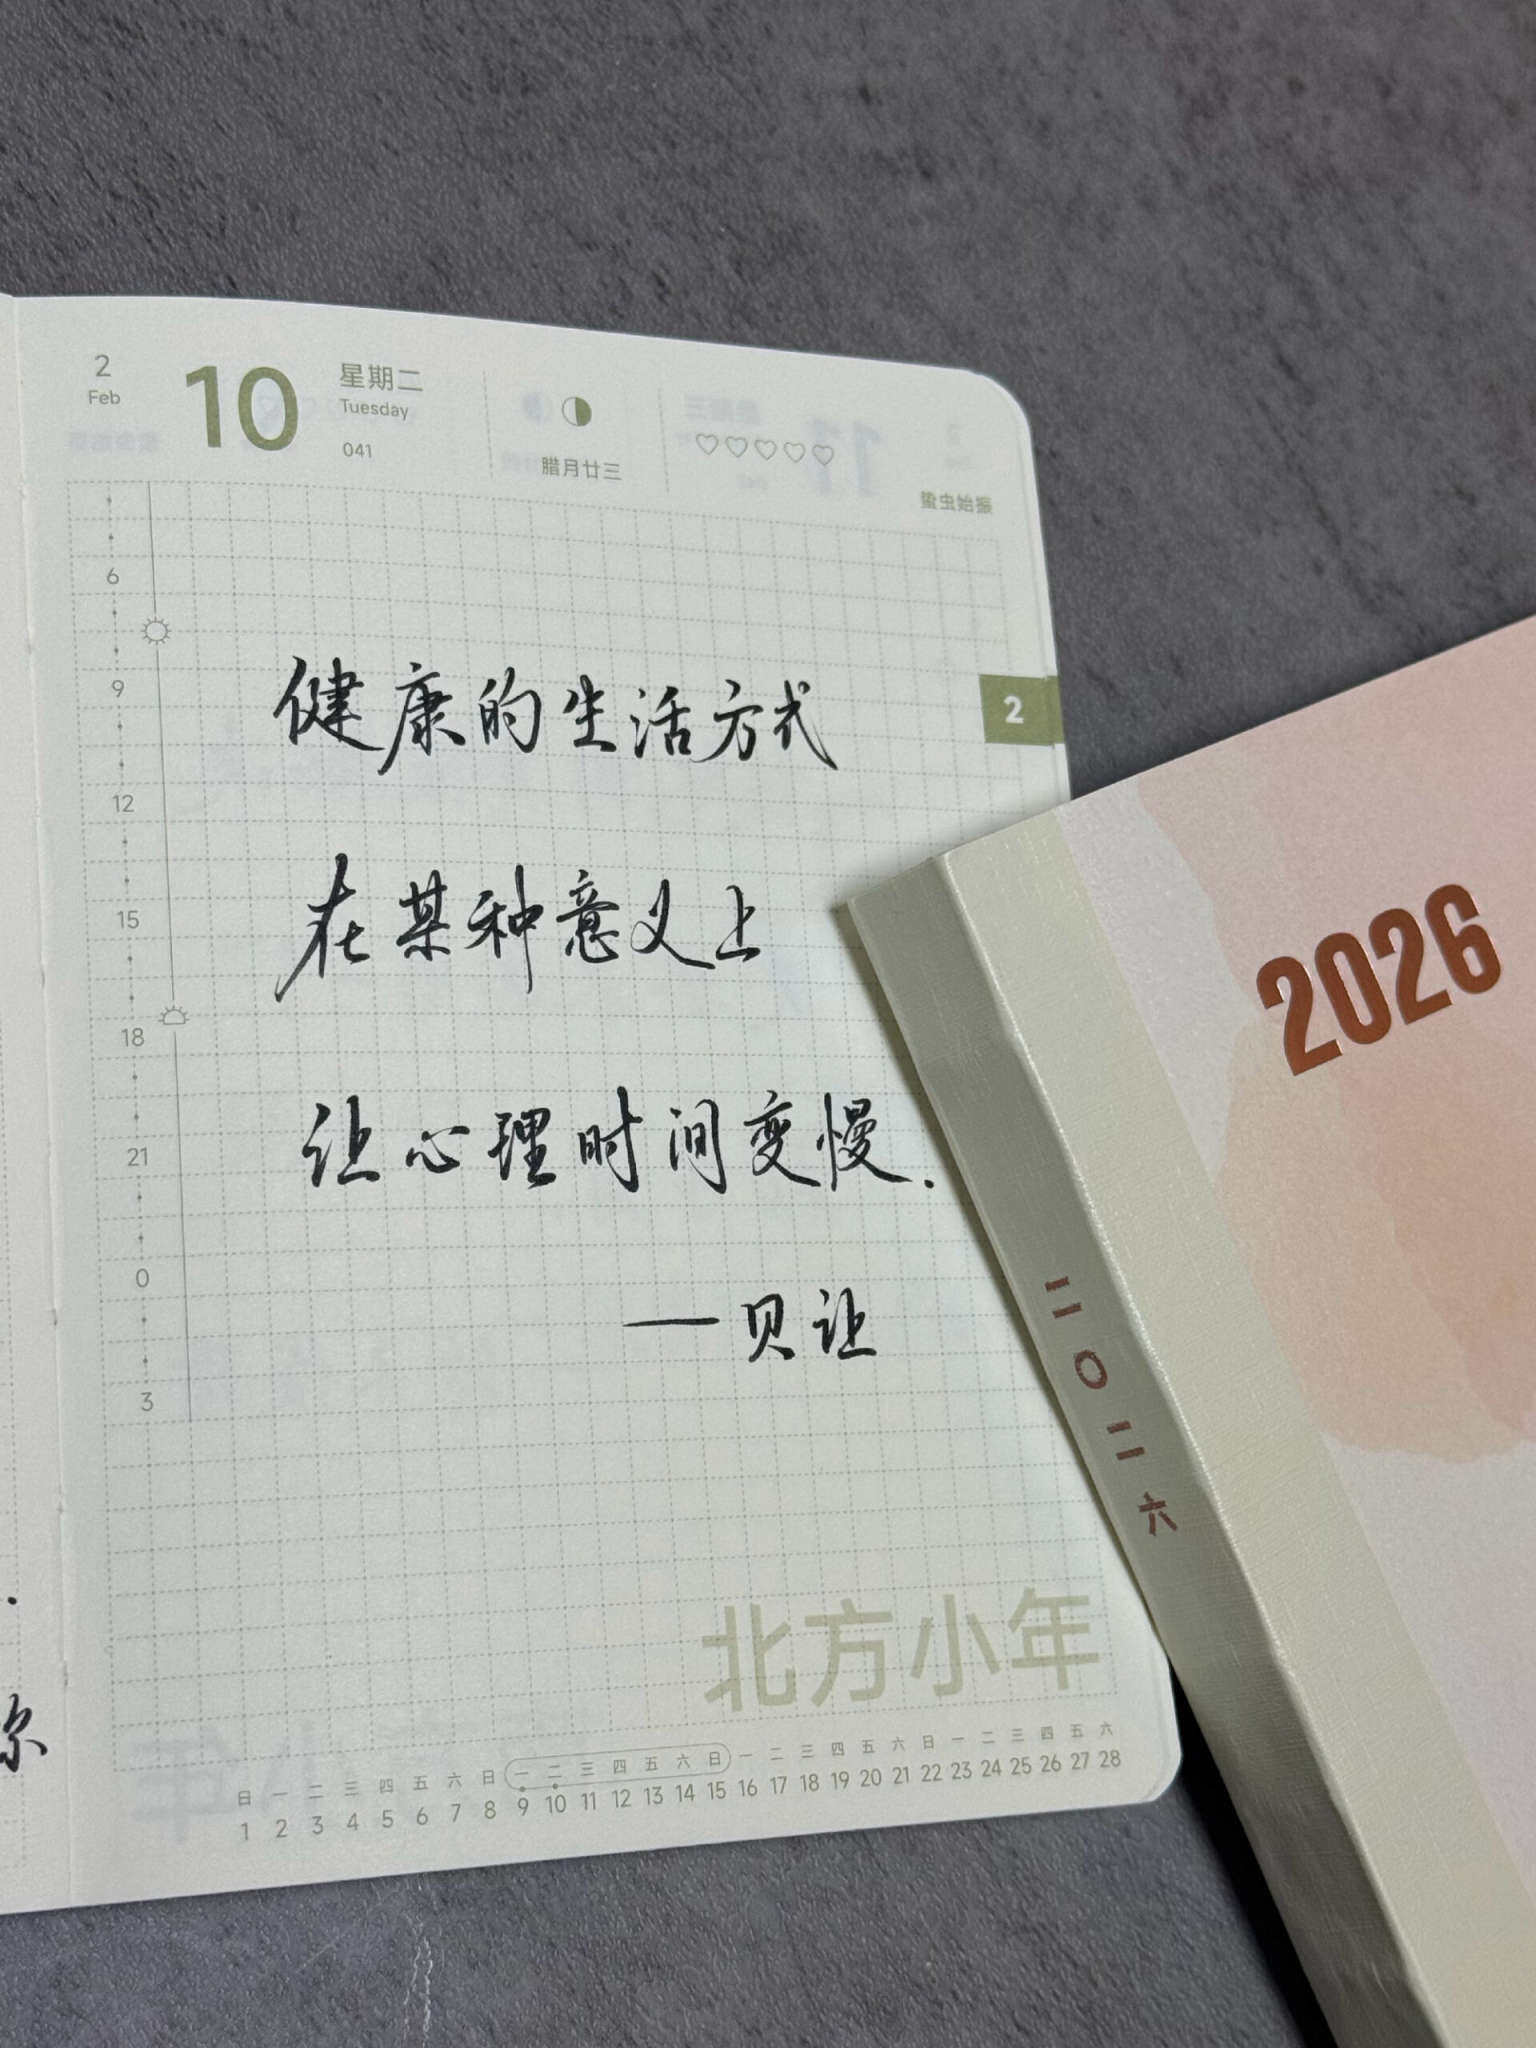 2
Feb
10
星期二
Tuesday
041
腊月廿三
蛰虫始振
6
9
12
15
18
21
0
3
健康的生活方式
在某种意义上
让心理时间变慢.
—贝让
2
北方小年
日 一 二 三 四 五 六 日 一 二 三 四 五 六 日 一 二 三 四 五 六 日 一 二 三 四 五 六
1 2 3 4 5 6 7 8 9 10 11 12 13 14 15 16 17 18 19 20 21 22 23 24 25 26 27 28
2026
二〇二六